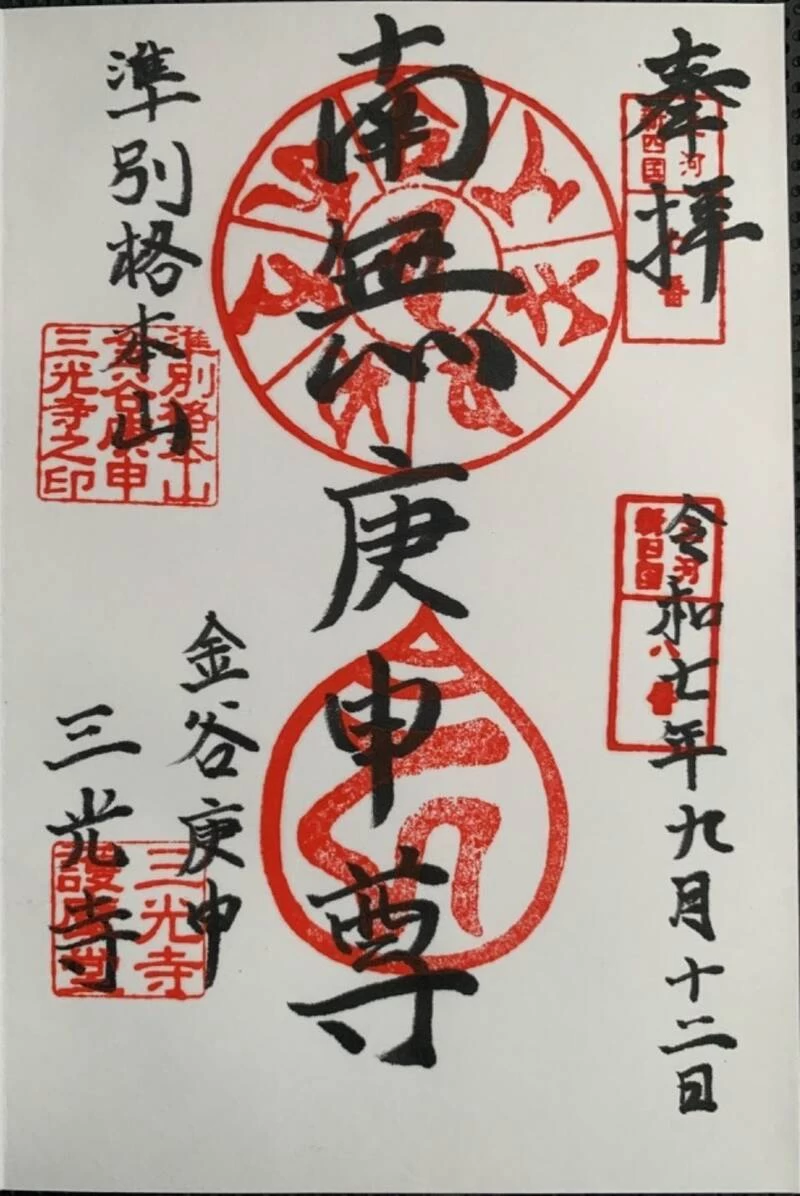 奉拝
令和七年九月十二日
南無庚申尊
準別格本山
金谷庚申
三光寺
新四国
番
河
新四国
八番
準別格本山
金谷庚申
三光寺之印
三光寺
護摩堂